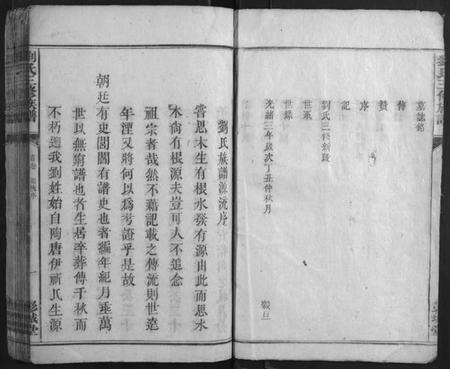 墓誌銘
傳
贊
序
記
劉氏三修新叚
世系
世錄
光緒三年歲次丁丑仲秋月
彭城堂
劉氏三修族譜
彭城堂
劉氏族譜源流序
嘗思木生有根水發有源由此而思水
木尙有根源夫豈可人不追念
祖宗者哉然不藉記載之傳流則世遠
年湮又將何以爲考證乎是故
朝廷有史閭閻有譜史也者編年紀月垂萬
世以無窮譜也者生居卒葬傳千秋而
不朽逈我劉姓始自陶唐伊祈氏生源